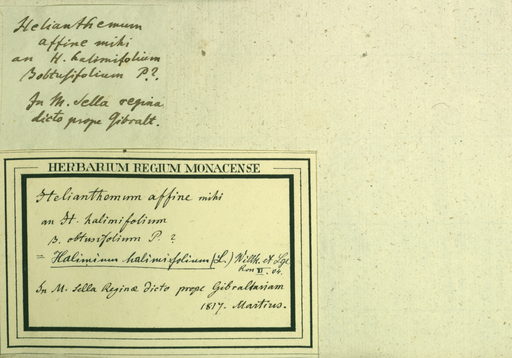 Helianthemum
affine mihi
an H. halimifolium
β obtusifolium P.?
In M. Sella regina
dicto prope Gibralt.
HERBARIUM REGIUM MONACENSE
Helianthemum affine mihi
an H. halimifolium
β. obtusifolium P. ?
= Halimium halimifolium (L.) Willk. et Lge
XI. 04.
In M. Sella Reginæ dicto prope Gibraltariam
1817. Martius.